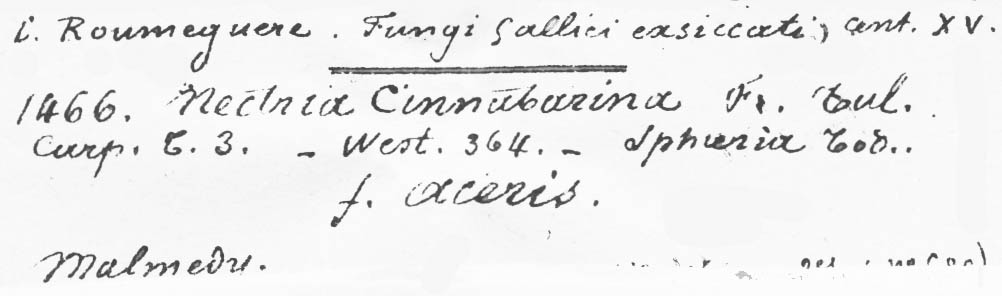 C. Roumeguere. Fungi Gallici exsiccati, cent. XV.
1466. Nectria Cinnabarina Fr. Tul.
Carp. t. 3. - West. 364. - Sphæria Tod..
f. aceris.
Malmedy.